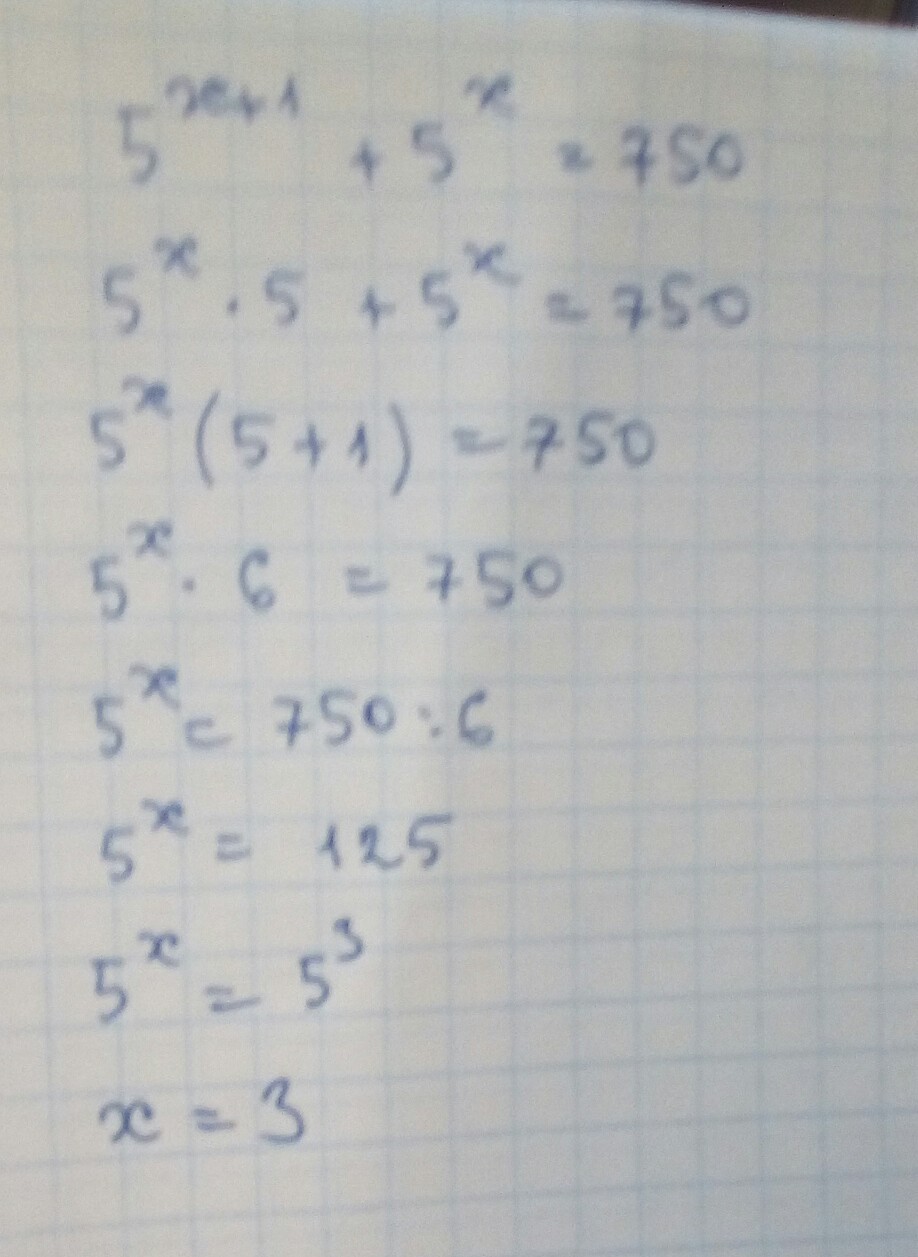 5^{x+1} + 5^x = 750
5^x · 5 + 5^x = 750
5^x (5 + 1) = 750
5^x · 6 = 750
5^x = 750 : 6
5^x = 125
5^x = 5^3
x = 3